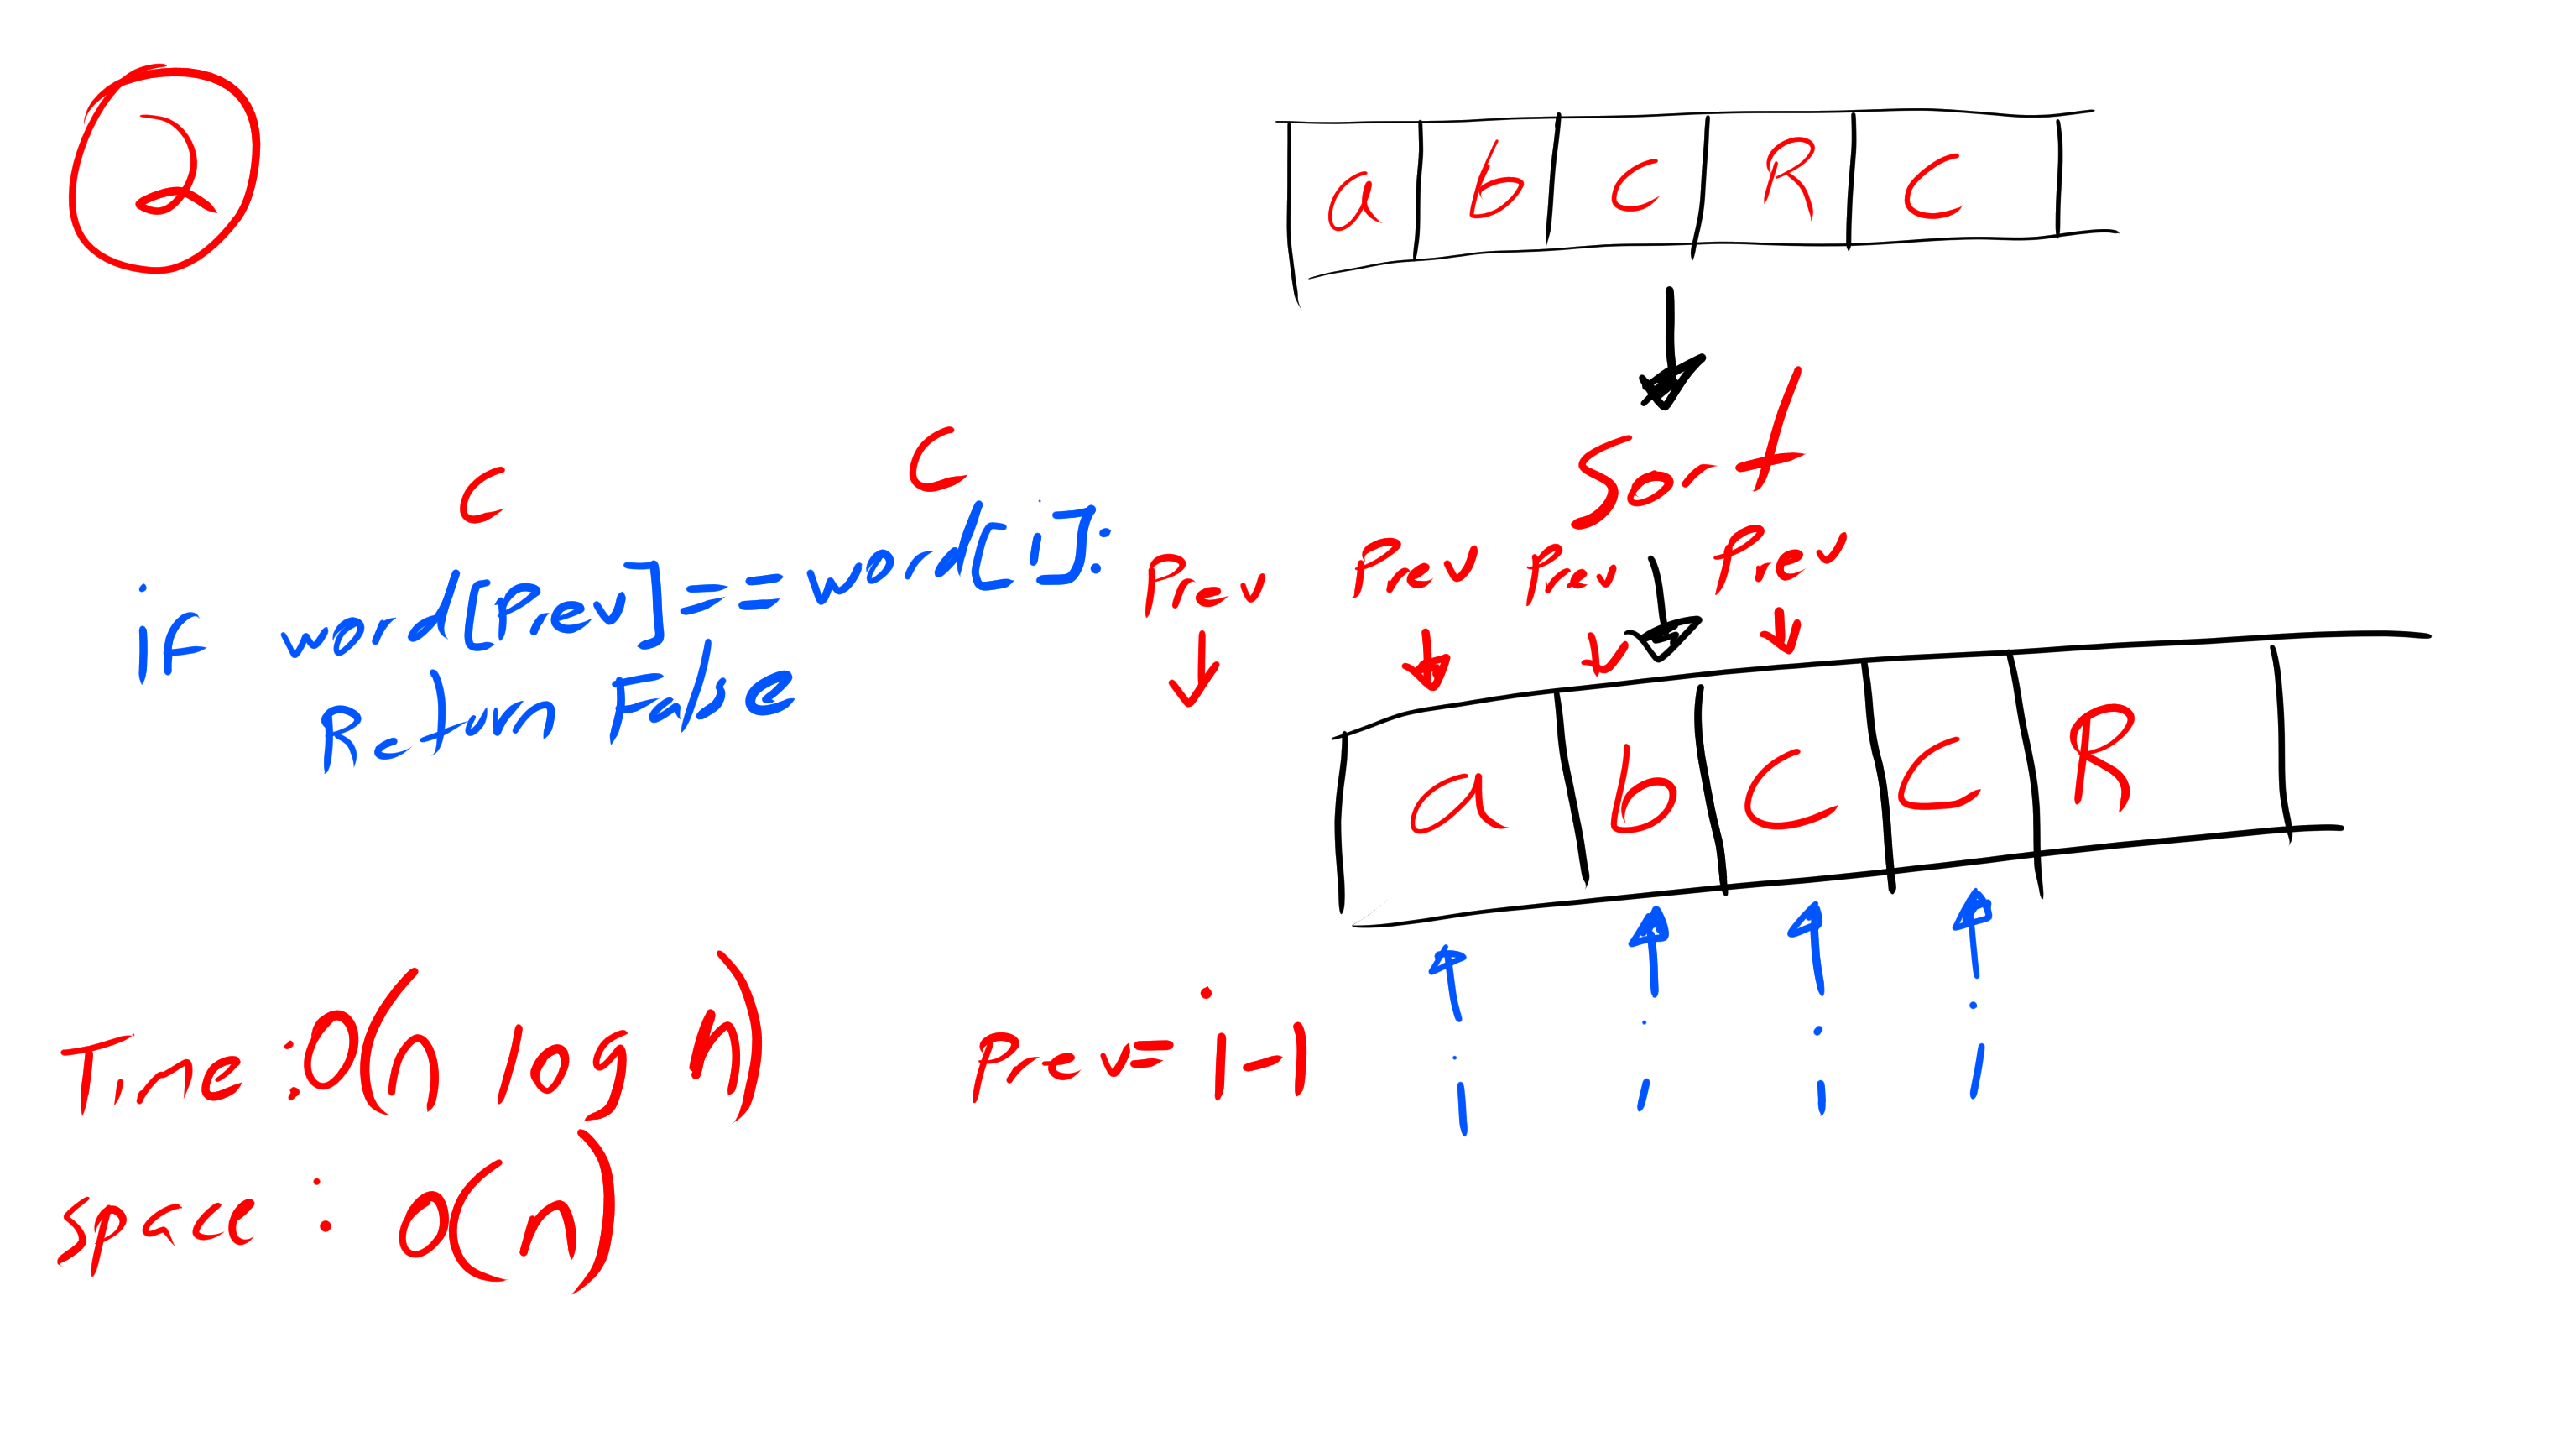 2
a b c R C
Sort
C C
if word[Prev]==word[i]:
Return False
Prev Prev Prev Prev
a b C C R
i i i i
Prev= i-1
Time: O(n log n)
Space : O(n)